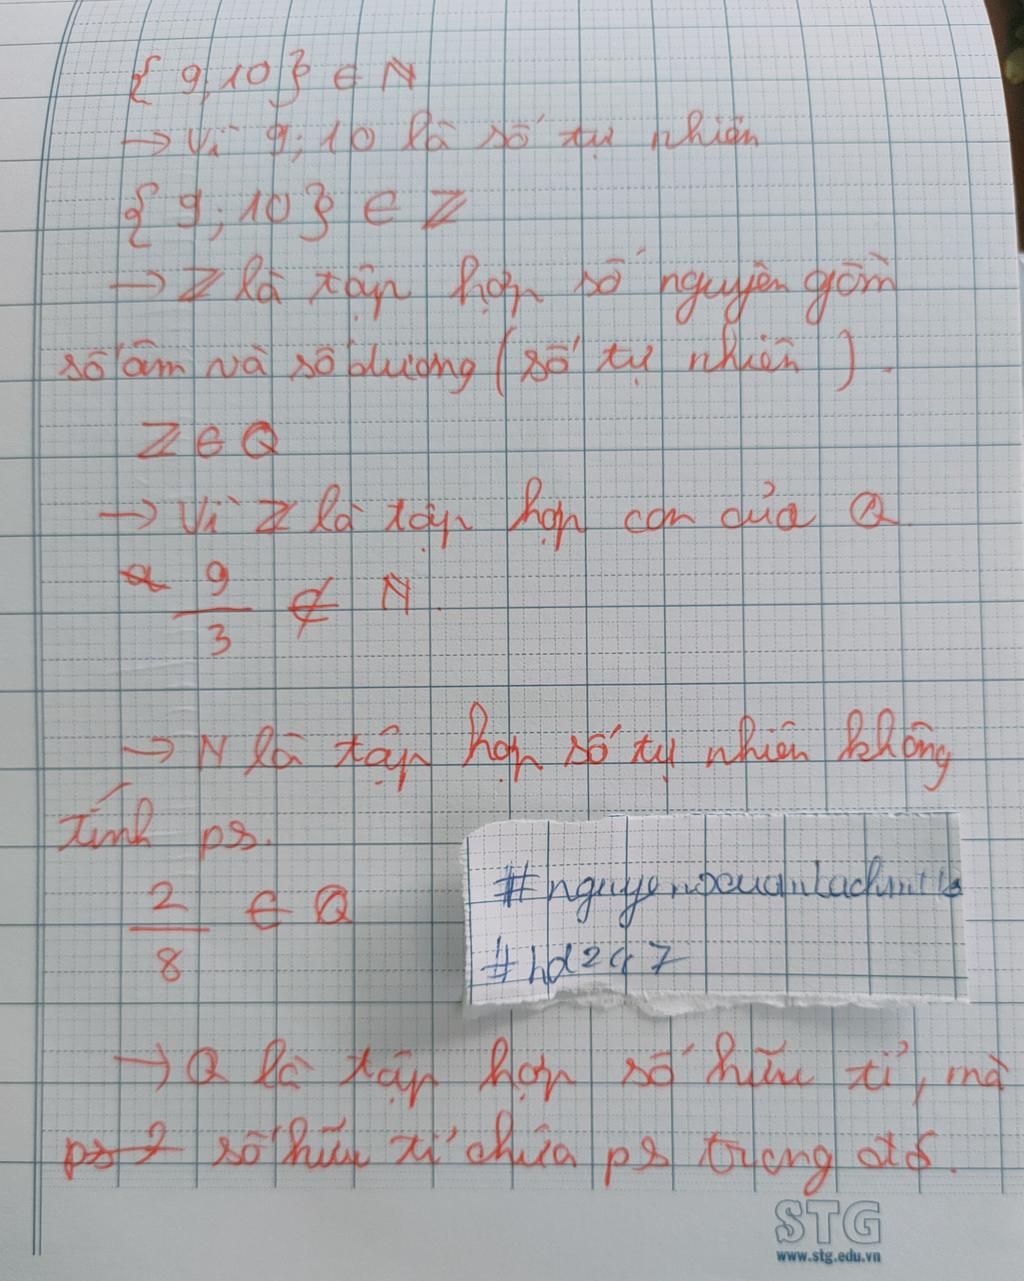 { 9; 10 } ∈ N
→ Vì 9; 10 là số tự nhiên
{ 9; 10 } ∈ Z
→ Z là tập hợp số nguyên gồm
số âm và số dương ( số tự nhiên ).
Z ∈ Q
→ Vì Z là tập hợp con của Q
9/3 ∉ N.
→ N là tập hợp số tự nhiên không
tính ps.
2/8 ∈ Q
#hd247
→ Q là tập hợp số hữu tỉ, mà
số hữu tỉ chứa ps trong đó.
STG
www.stg.edu.vn